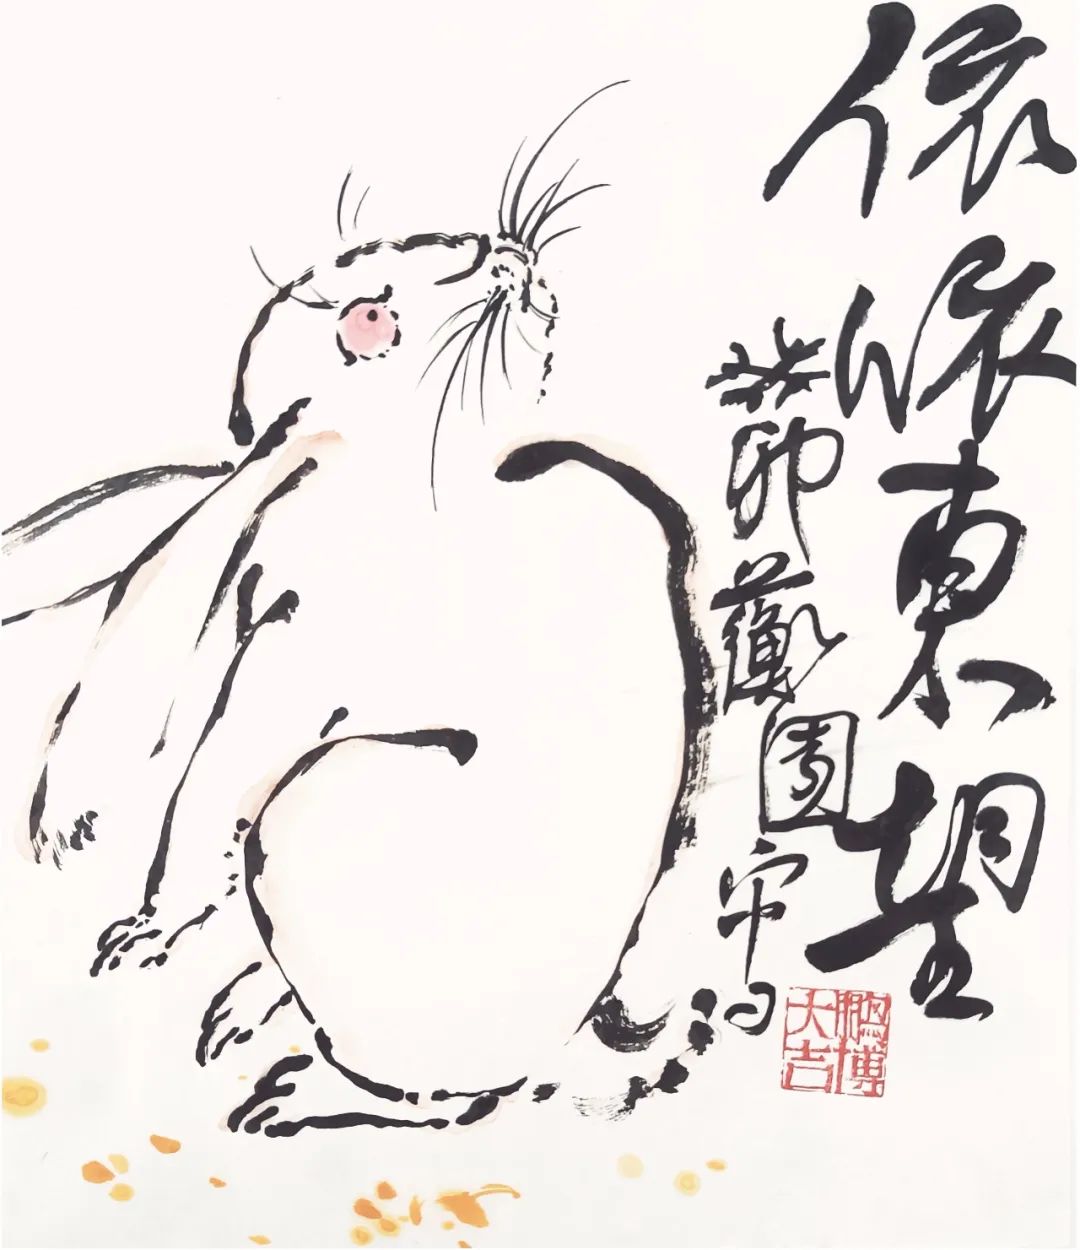 依依東望
癸卯蘅園
鵬博
大吉